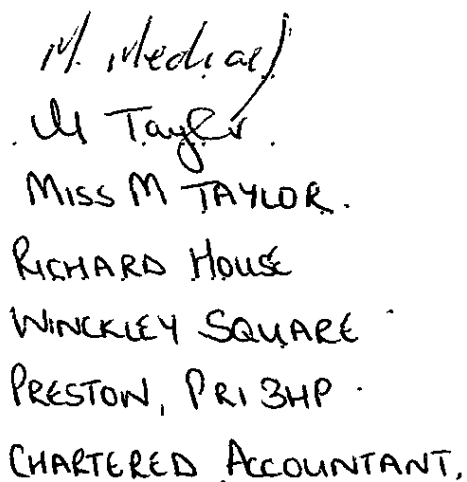 M Taylor.
MISS M TAYLOR.
RICHARD HOUSE
WINCKLEY SQUARE
PRESTON, PR1 3HP.
CHARTERED ACCOUNTANT.